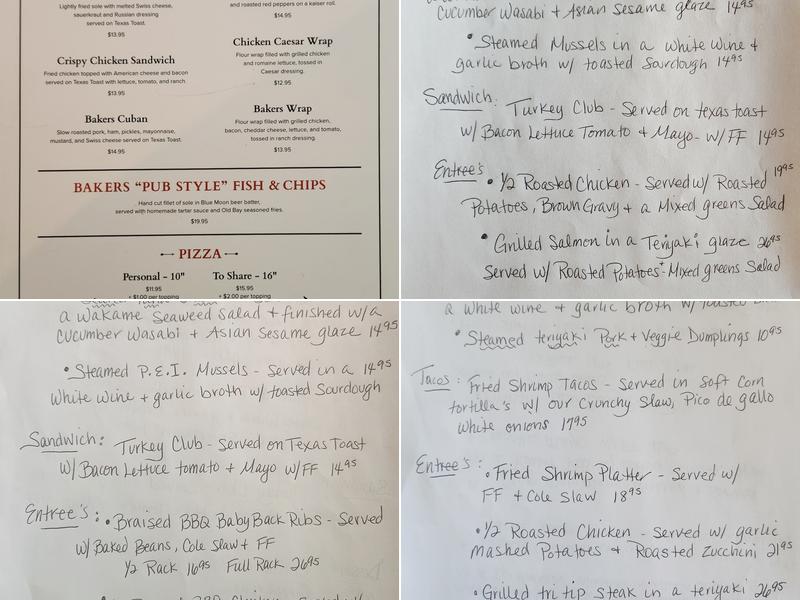 Lightly fried sole with melted Swiss cheese,
sauerkraut and Russian dressing
served on Texas Toast.
$13.95
Crispy Chicken Sandwich
Fried chicken topped with American cheese and bacon
served on Texas Toast with lettuce, tomato, and ranch.
$13.95
Bakers Cuban
Slow roasted pork, ham, pickles, mayonnaise,
mustard, and Swiss cheese served on Texas Toast.
$14.95
and roasted red peppers on a kaiser roll.
$14.95
Chicken Caesar Wrap
Flour wrap filled with grilled chicken
and romaine lettuce, tossed in
Caesar dressing.
$12.95
Bakers Wrap
Flour wrap filled with grilled chicken,
bacon, cheddar cheese, lettuce, and tomato,
tossed in ranch dressing.
$13.95
BAKERS “PUB STYLE” FISH & CHIPS
Hand cut fillet of sole in Blue Moon beer batter,
served with homemade tartar sauce and Old Bay seasoned fries.
$19.95
PIZZA
Personal - 10"
$11.95
+ $1.00 per topping
To Share - 16"
$15.95
+ $2.00 per topping
Cucumber Wasabi + Asian Sesame glaze 14⁹⁵
• Steamed Mussels in a white wine +
garlic broth w/ toasted Sourdough 14⁹⁵
Sandwich: Turkey Club - Served on texas toast
w/ Bacon Lettuce Tomato + Mayo - w/ FF 14⁹⁵
Entree's • ½ Roasted Chicken - Served w/ Roasted 19⁹⁵
Potatoes, Brown Gravy + a Mixed greens Salad
• Grilled Salmon in a Teriyaki glaze 26⁹⁵
Served w/ Roasted Potatoes + Mixed greens Salad
a Wakame Seaweed Salad + finished w/ a
Cucumber Wasabi + Asian Sesame glaze 14⁹⁵
• Steamed P.E.I. Mussels - Served in a 14⁹⁵
White wine + garlic broth w/ toasted Sourdough
Sandwich: Turkey Club - Served on Texas Toast
w/ Bacon Lettuce tomato + Mayo w/FF 14⁹⁵
Entree's: • Braised BBQ Baby Back Ribs - Served
w/ Baked Beans, Cole Slaw + FF
½ Rack 16⁹⁵ Full Rack 26⁹⁵
a white wine + garlic broth w/
• Steamed teriyaki Pork + Veggie Dumplings 10⁹⁵
Tacos: Fried Shrimp Tacos - Served in Soft Corn
tortilla's w/ our Crunchy Slaw, Pico de gallo
white onions 17⁹⁵
Entree's: • Fried Shrimp Platter - Served w/
FF + Cole Slaw 18⁹⁵
• ½ Roasted Chicken - Served w/ garlic
mashed Potatoes + Roasted Zucchini 21⁹⁵
• Grilled tri tip Steak in a teriyaki 26⁹⁵